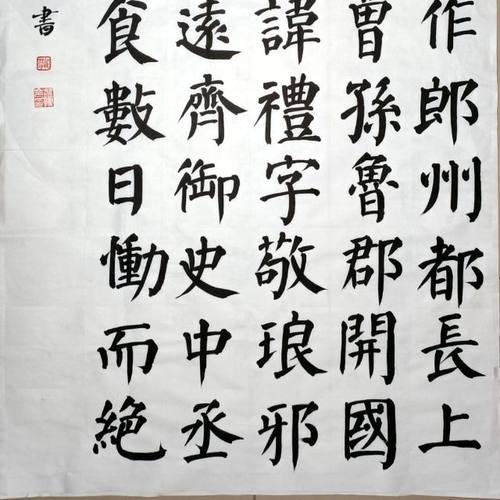 作郎州都長上
曾孫魯郡開國
諱禮字敬琅邪
遠齊御史中丞
食數日慟而絕
書